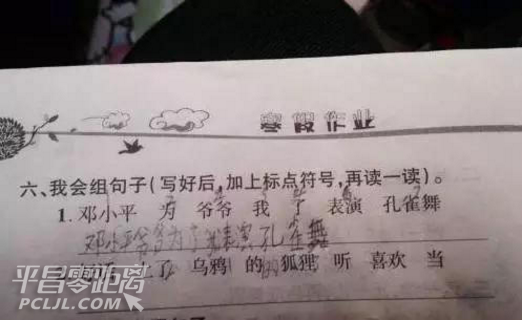 寒假作业
六、我会组句子(写好后,加上标点符号,再读一读)。
1.邓小平 为 爷爷 我 了 表演 孔雀舞
邓小平爷爷为了我表演孔雀舞
了 乌鸦 的 狐狸 听 喜欢 当
平昌零距离
PCLJL.COM